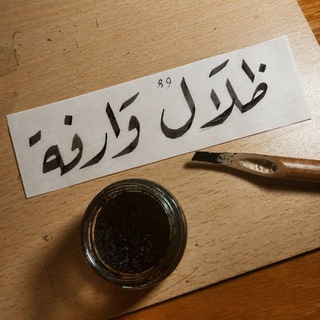 ظلَالٌ وَارفة